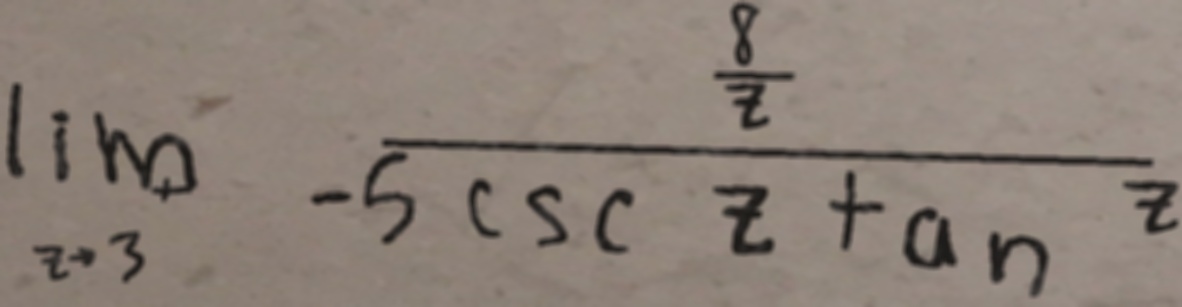 \lim_{z \to 3} \frac{\frac{8}{z}}{-5 \csc z \tan z}